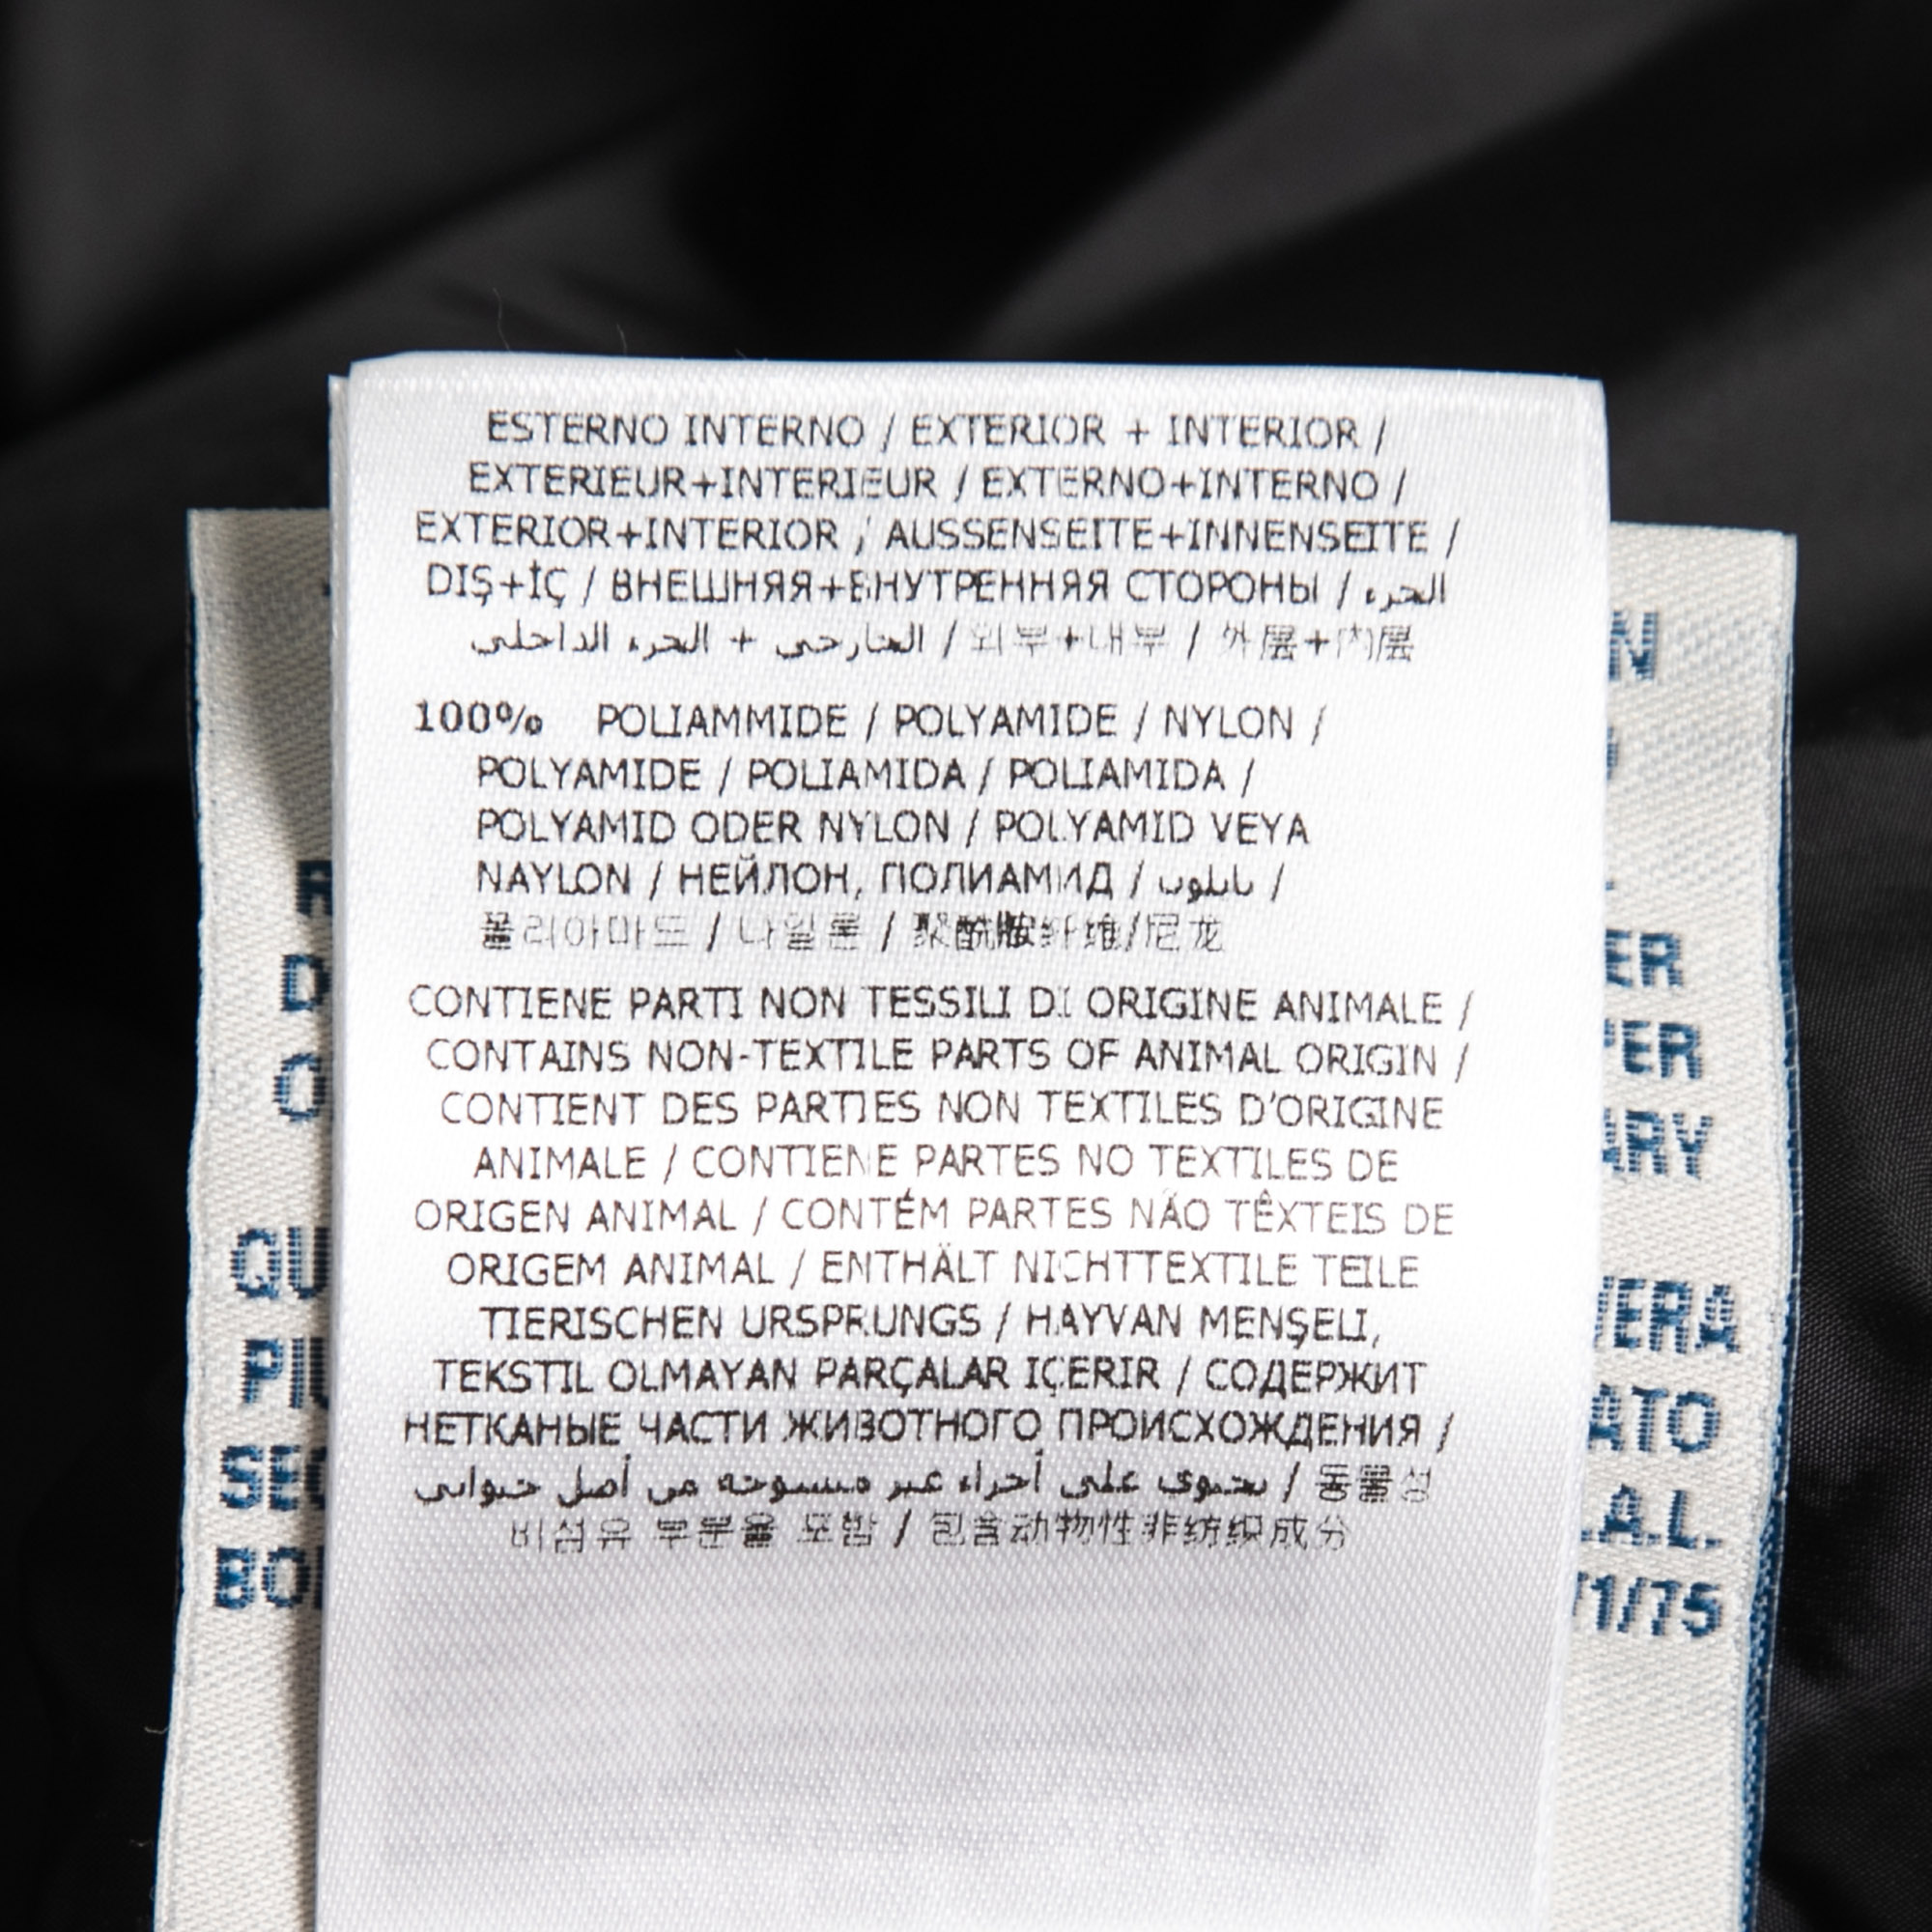 ESTERNO INTERNO / EXTERIOR + INTERIOR /
EXTERIEUR+INTERIEUR / EXTERNO+INTERNO /
EXTERIOR+INTERIOR / AUSSENSEITE+INNENSEITE /
DIŞ+İÇ / ВНЕШНЯЯ+ВНУТРЕННЯЯ СТОРОНЫ / الجزء
الخارجي + الجزء الداخلي / 외부+내부 / 外层+内层
100% POLIAMMIDE / POLYAMIDE / NYLON /
POLYAMIDE / POLIAMIDA / POLIAMIDA /
POLYAMID ODER NYLON / POLYAMID VEYA
NAYLON / НЕЙЛОН, ПОЛИАМИД / نايلون /
폴리아마드 / 나일론 / 聚酰胺纤维/尼龙
CONTIENE PARTI NON TESSILI DI ORIGINE ANIMALE /
CONTAINS NON-TEXTILE PARTS OF ANIMAL ORIGIN /
CONTIENT DES PARTIES NON TEXTILES D'ORIGINE
ANIMALE / CONTIENE PARTES NO TEXTILES DE
ORIGEN ANIMAL / CONTÉM PARTES NÃO TÊXTEIS DE
ORIGEM ANIMAL / ENTHÄLT NICHTTEXTILE TEILE
TIERISCHEN URSPRUNGS / HAYVAN MENŞELI,
TEKSTIL OLMAYAN PARÇALAR IÇERIR / СОДЕРЖИТ
НЕТКАНЫЕ ЧАСТИ ЖИВОТНОГО ПРОИСХОЖДЕНИЯ /
يحتوي على أجزاء غير منسوجة من أصل حيواني / 동물성
비섬유 부분을 포함 / 包含动物性非纺织成分
D
O
QU
PIU
SEC
BO
N
ER
PER
ARY
VERA
ATO
.A.L.
71/75